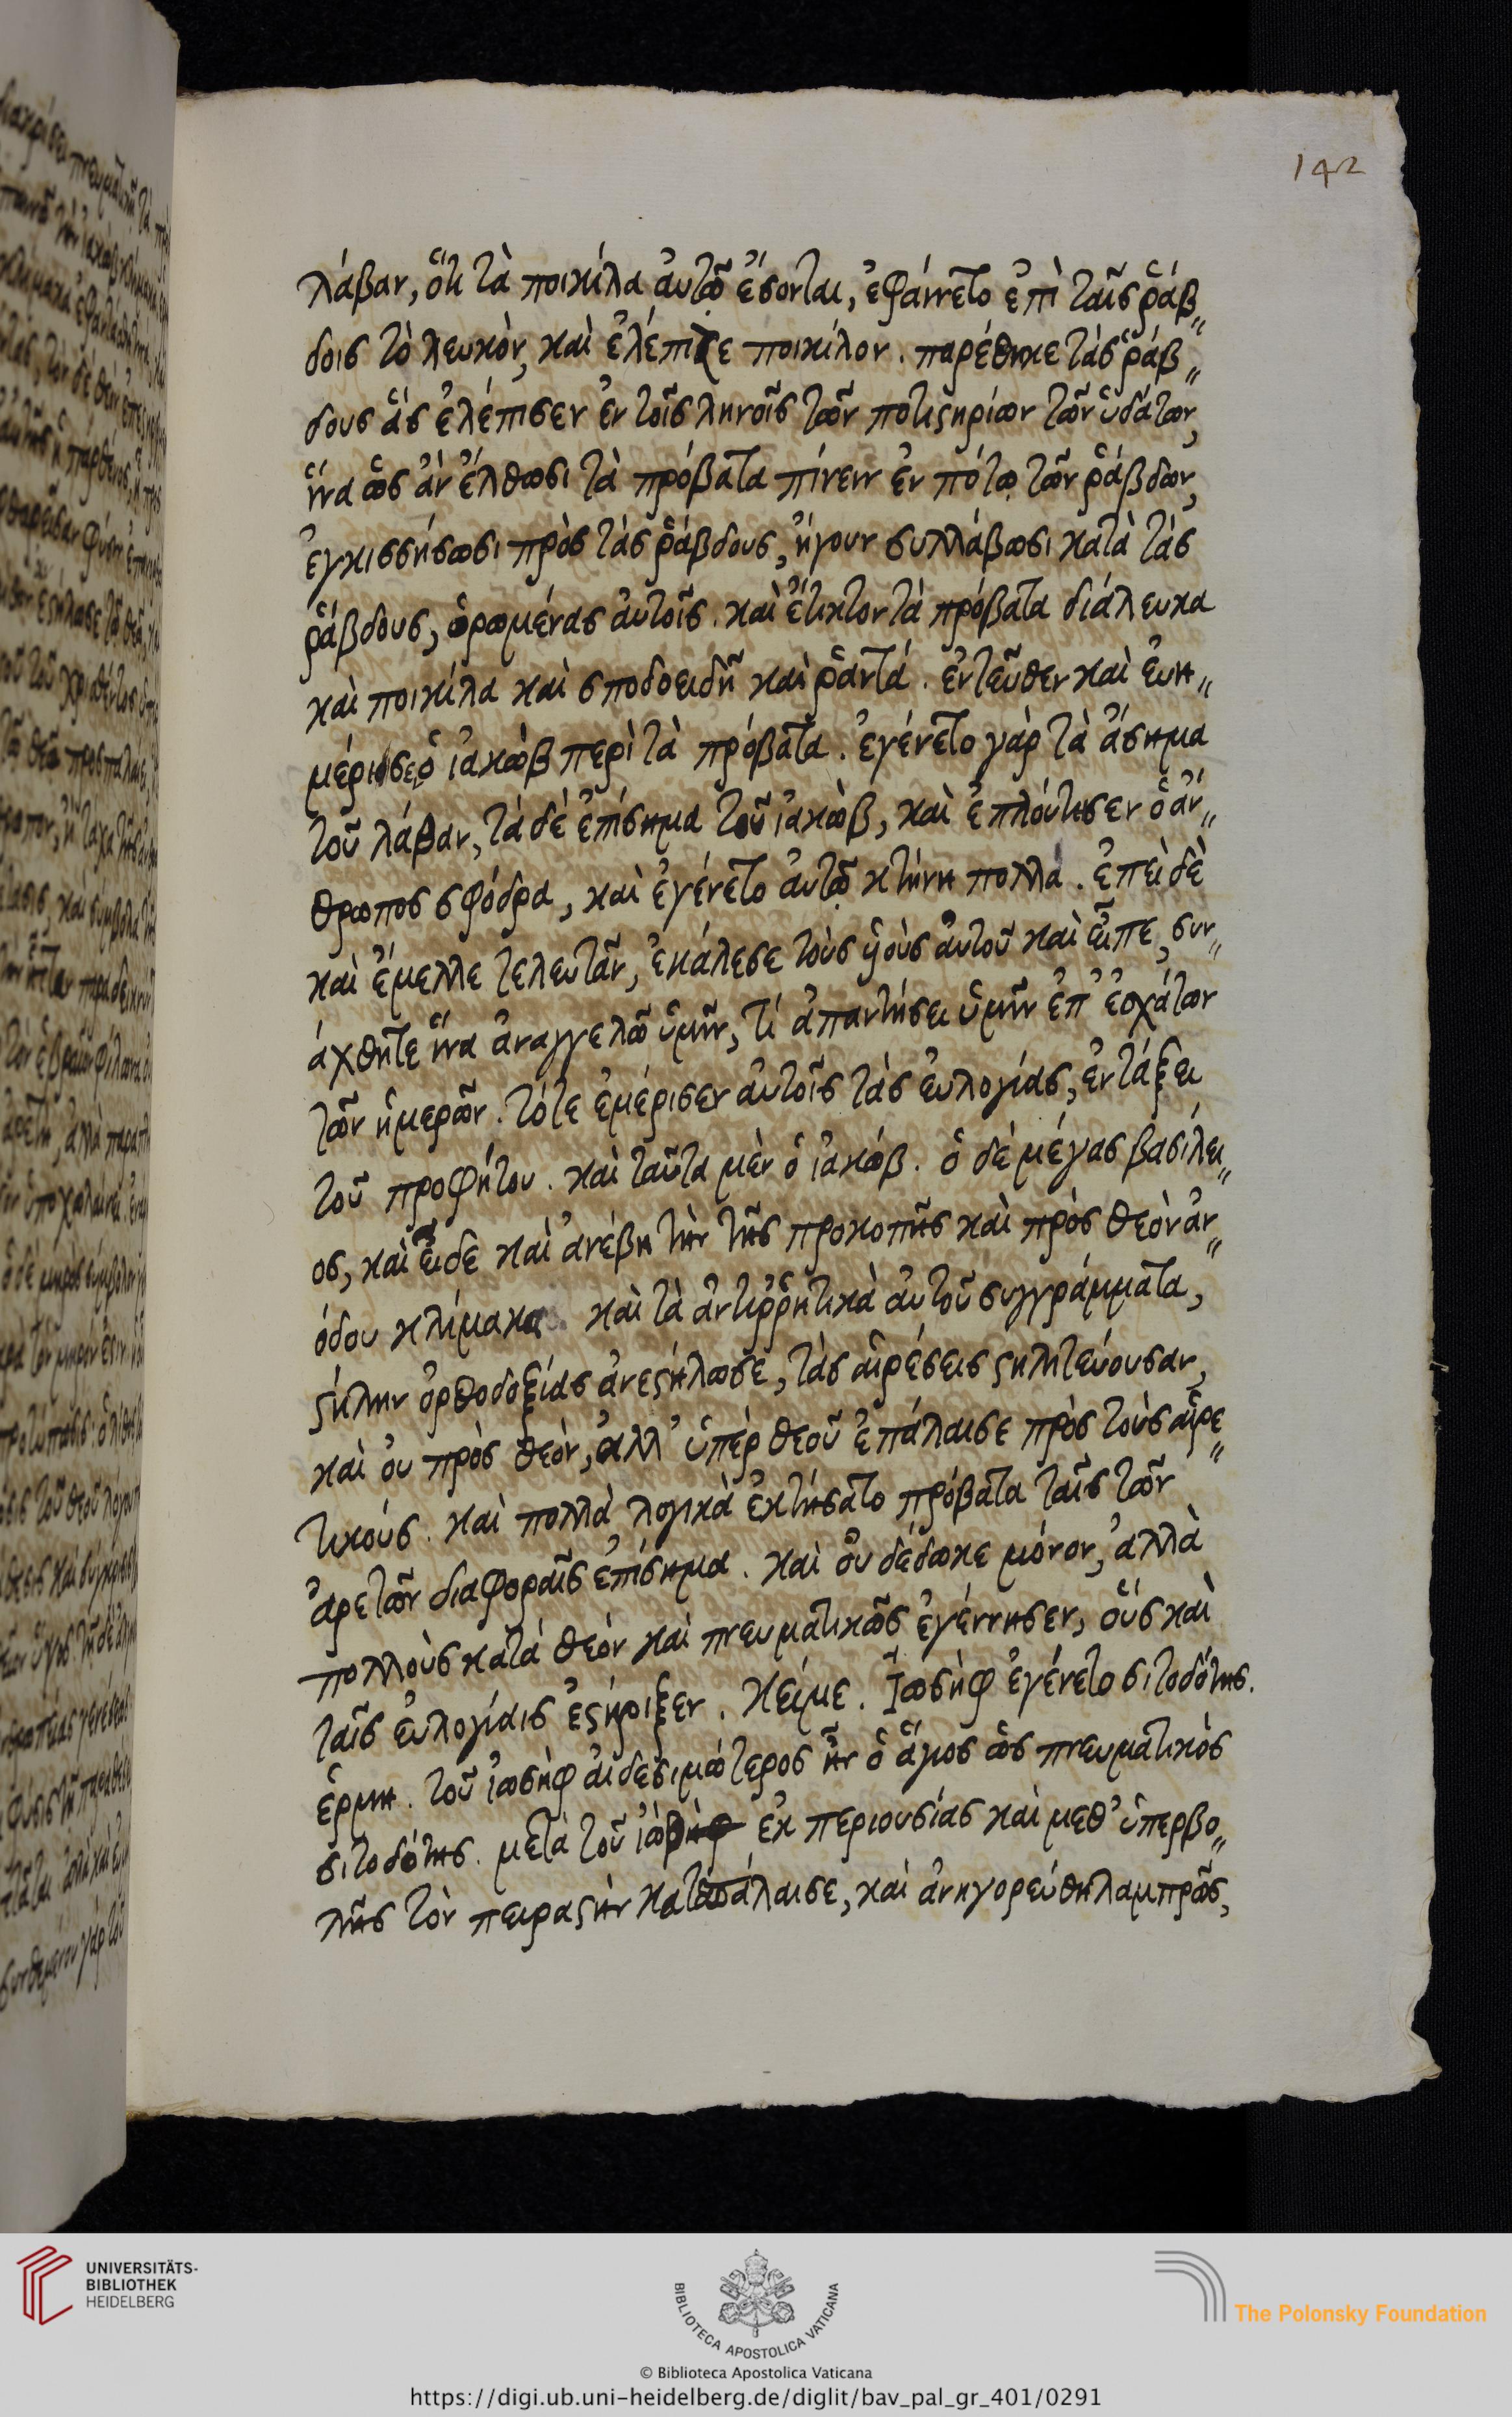 142
λάβαν, ὅτι τὰ ποικίλα ἀυτῶ ἔσονται, ἐφαίνετο ἐπὶ ταῖς ῥάβ„
δοις τὸ λευκὸν, καὶ ἐλέπιζε ποικίλον. παρέθηκε τὰς ῥάβ„
δους ἃς ἐλέπισεν ἐν τοῖς ληνοῖς τῶν ποτιστηρίων τῶν ὑδάτων,
ἵνα ὡς ἂν ἔλθωσι τὰ πρόβατα πίνειν ἐν πότω τῶν ῥάβδων,
ἐγκισσήσωσι πρὸς τὰς ῥάβδους, ἤγουν συλλάβωσι κατὰ τὰς
ῥάβδους, ὁρωμένας ἀυτοῖς. καὶ ἔτικτον τὰ πρόβατα διάλευκα
καὶ ποικίλα καὶ σποδοειδῆ καὶ ῥαντά. ἐντεῦθεν καὶ ἐυη„
μέρισεν ὁ ἰακὼβ περὶ τὰ πρόβατα. ἐγένετο γὰρ τὰ ἄσημα
τοῦ λάβαν, τὰ δὲ ἐπίσημα τοῦ ἰακὼβ, καὶ ἐπλούτησεν ὁ ἄν„
θρωπος σφόδρα, καὶ ἐγένετο ἀυτῶ κτήνη πολλά. ἐπεὶ δὲ
καὶ ἔμελλε τελευτᾶν, ἐκάλεσε τοὺς υἱοὺς ἀυτοῦ καὶ εἶπε, συν„
άχθητε ἵνα ἀναγγελῶ ὑμῖν, τί ἀπαντήσει ὑμῖν ἐπ' ἐσχάτων
τῶν ἡμερῶν. τότε ἐμέρισεν ἀυτοῖς τὰς ἐυλογίας, ἐν τάξει
τοῦ προφήτου. καὶ ταῦτα μὲν ὁ ἰακώβ. ὁ δὲ μέγας βασίλει„
ος, καὶ εἶδε καὶ ἀνέβη τὴν τῆς προκοπῆς καὶ πρὸς θεὸν ἀν„
όδου κλίμακα καὶ τὰ ἀντιρρητικὰ ἀυτοῦ συγγράμματα,
στήλην ὀρθοδοξίας ἀνεστήλωσε, τὰς αἱρέσεις στηλιτεύουσαν,
καὶ ὀυ πρὸς θεὸν, ἀλλ' ὑπὲρ θεοῦ ἐπάλαισε πρὸς τοὺς αἱρε„
τικούς. καὶ πολλὰ λογικὰ ἐκτήσατο πρόβατα ταῖς τῶν
ἀρετῶν διαφοραῖς ἐπίσημα. καὶ ὀυ δέδωκε μόνον, ἀλλὰ
πολλοὺς κατὰ θεὸν καὶ πνευματικῶς ἐγέννησεν, οὓς καὶ
ταῖς ἐυλογίαις ἐστήριξεν. κείμε. Ἰωσὴφ ἐγένετο σιτοδότης.
ἑρμη. τοῦ ἰωσὴφ ἀιδεσιμώτερος ἦν ὁ ἅγιος ὡς πνευματικὸς
σιτοδότης. μετὰ τοῦ ἰὼβ ἐκ περιουσίας καὶ μεθ' ὑπερβο„
λῆς τὸν πειραστὴν κατεπάλαισε, καὶ ἀνηγορεύθη λαμπρῶς,
UNIVERSITÄTS-
BIBLIOTHEK
HEIDELBERG
BIBLIOTECA APOSTOLICA VATICANA
The Polonsky Foundation
© Biblioteca Apostolica Vaticana
https://digi.ub.uni-heidelberg.de/diglit/bav_pal_gr_401/0291